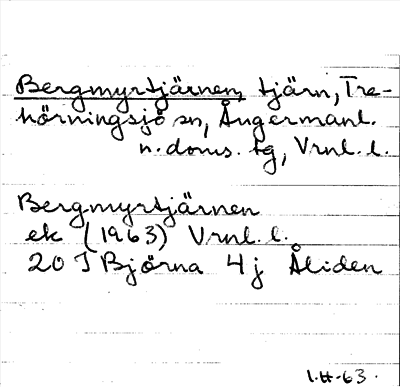 Bergmyrtjärnen, tjärn, Tre-
hörningsjö sn, Ångermanl.
n. doms. tg, Vrnl. l.
Bergmyrtjärnen
ek (1963) Vrnl. l.
20 I Björna 4j Åliden
1.H.63.